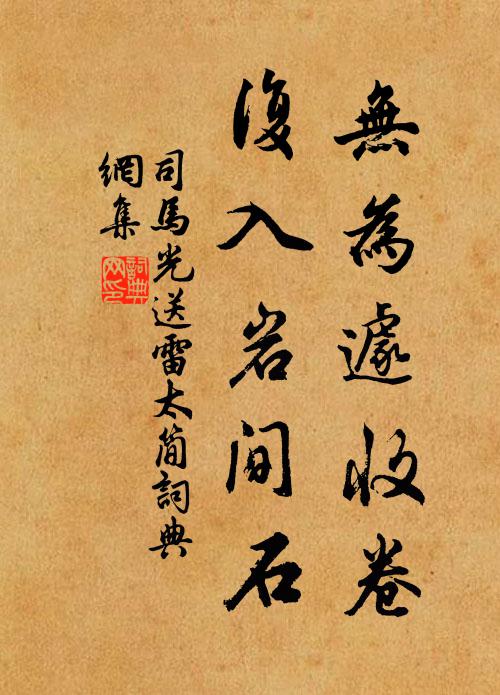 無為遽收卷
復入岩間石
司馬光送雷太簡詞典
網集
詞典
网印